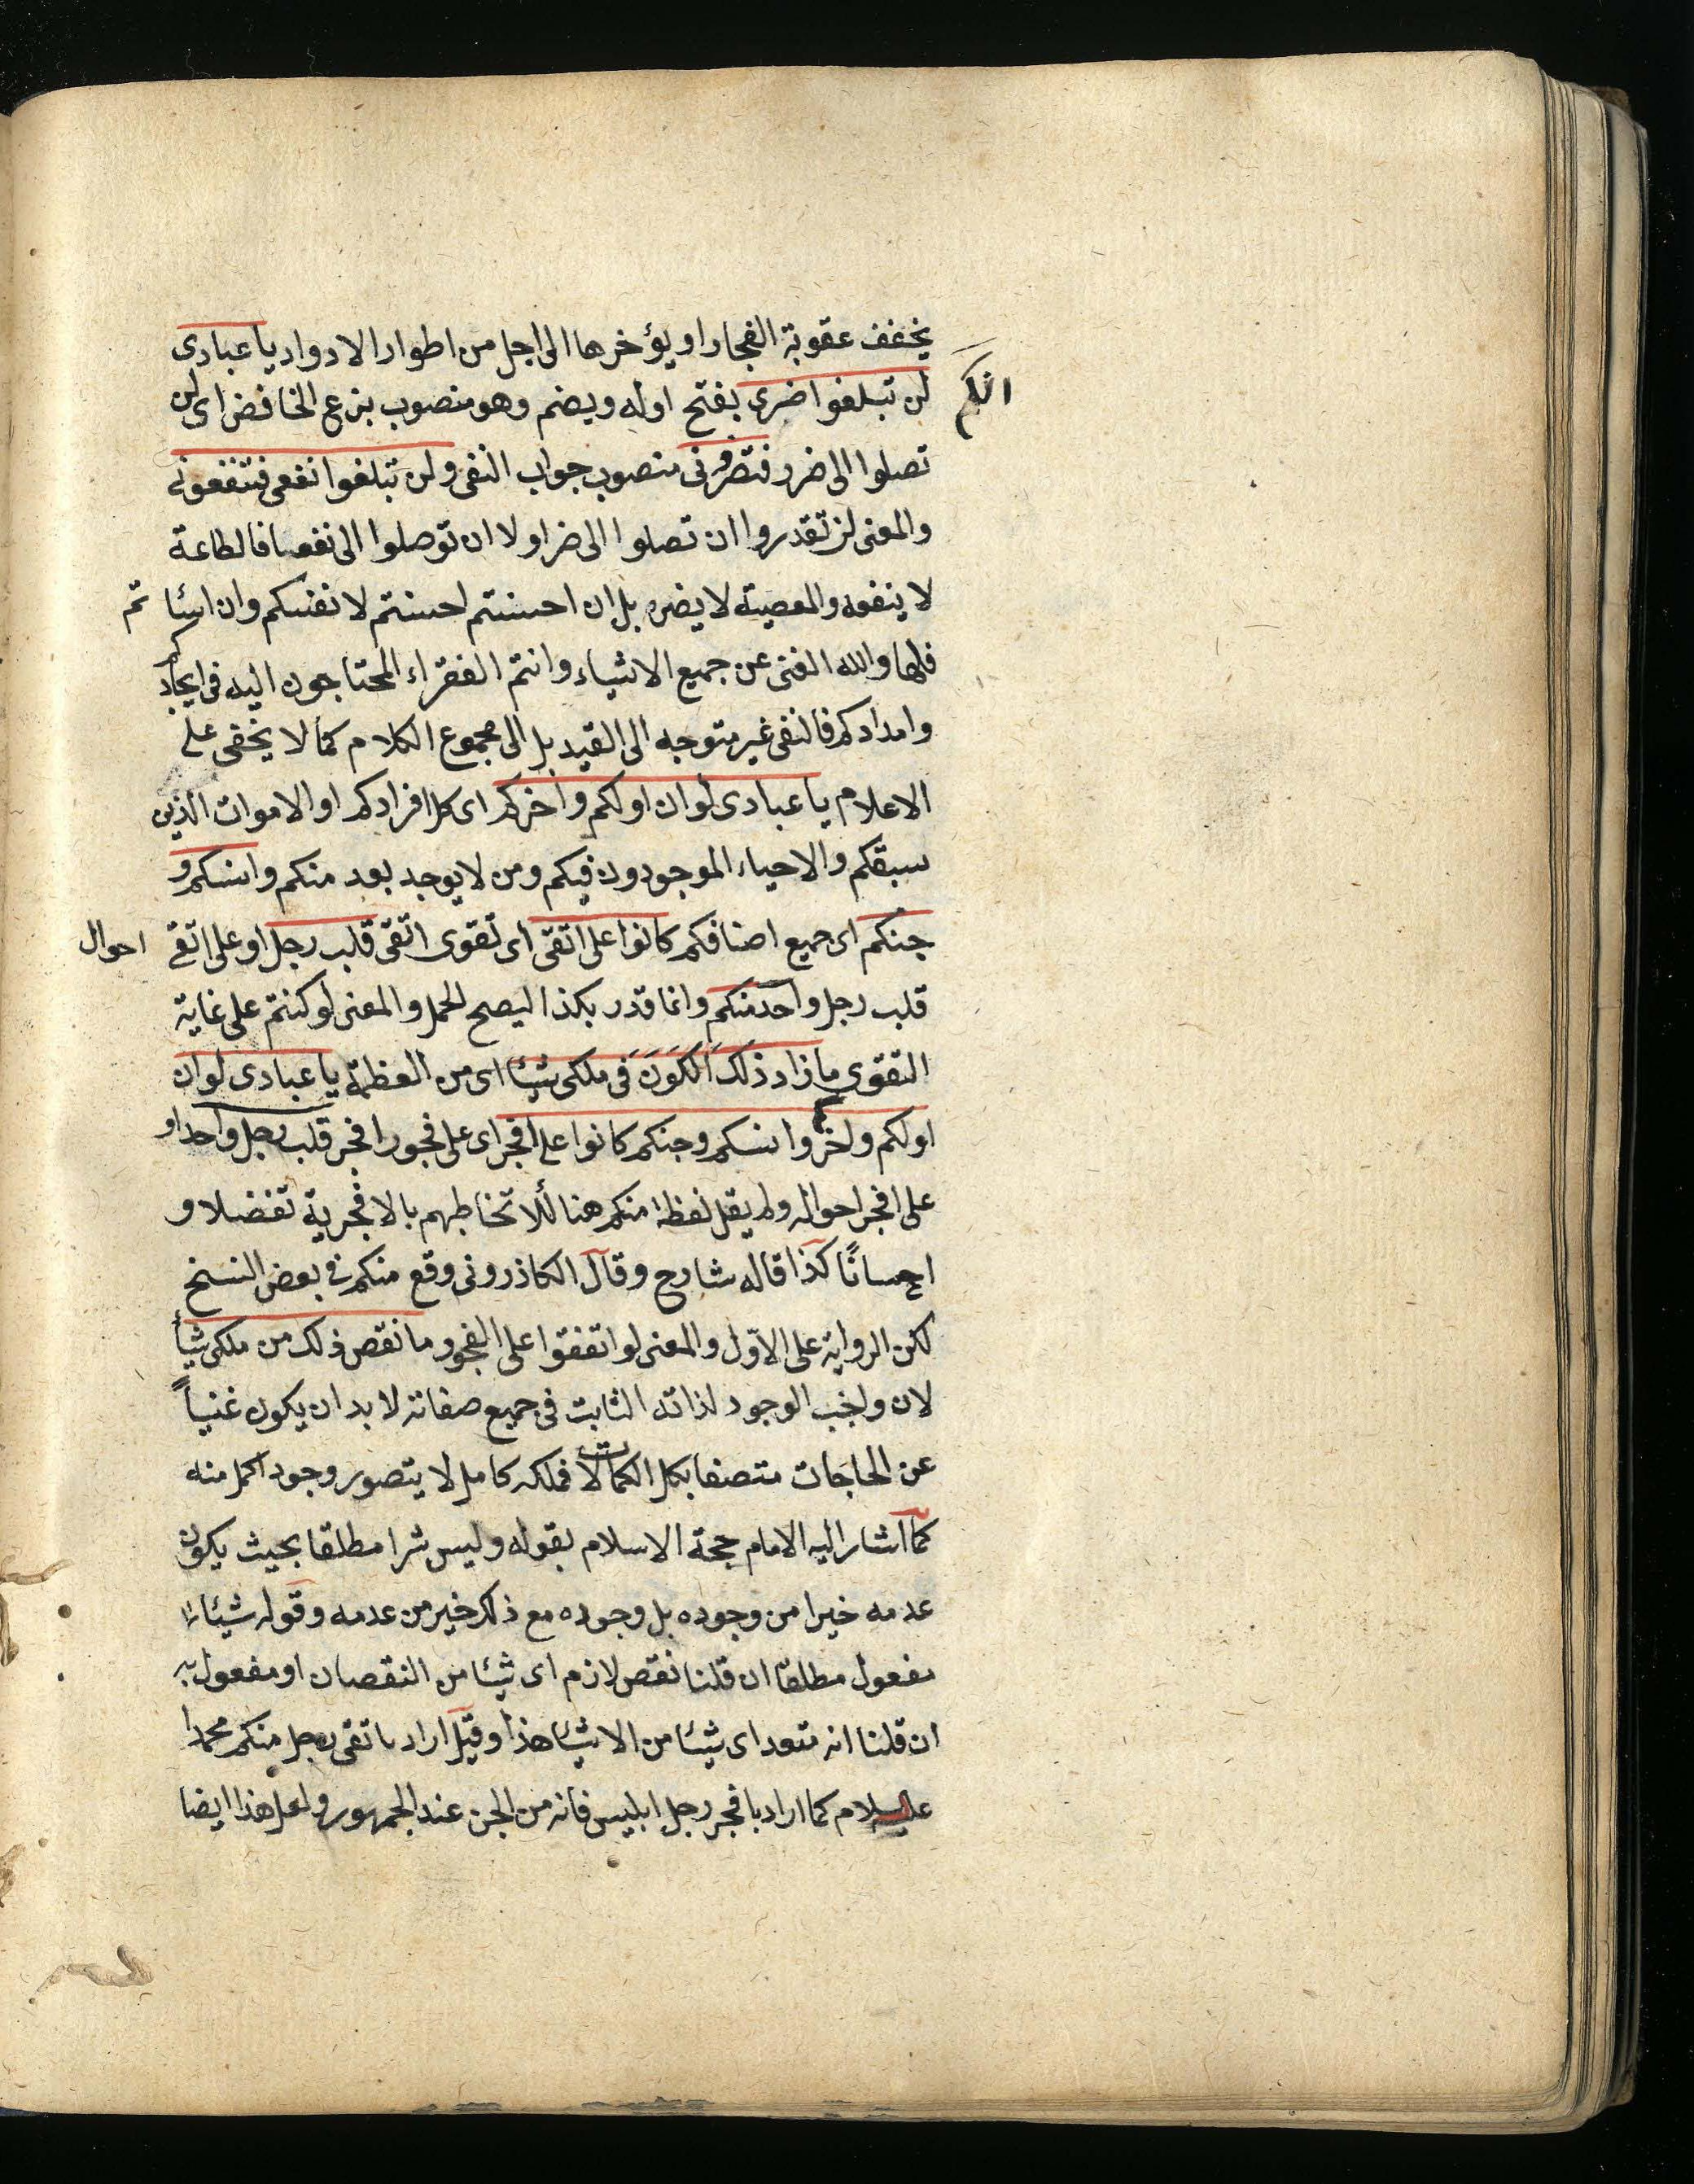 يخفف عقوبة الفجار او يؤخرها الى اجل من اطوار الادوار يا عبادى
انكم
لن تبلغوا ضرى بفتح اوله ويضم وهو منصوب بنزع الخافض اى لن
تصلوا الى ضرر فتضرونى منصوب جواب النفى ولن تبلغوا نفعى فتنفعونى
والمعنى لن تقدروا ان تصلوا الى ضر او لا ان توصلوا الى نفعا فالطاعة
لا ينفعه والمعصية لا يضره بل ان احسنتم احسنتم لانفسكم وان اسئاتم
فلها والله الغنى عن جميع الاشياء وانتم الفقراء المحتاجون اليه فى ايجادكم
وامدادكم فالنفى غير متوجه الى القيد بل الى مجموع الكلام كما لا يخفى على
الاعلام يا عبادى لو ان اولكم واخركم اى كل افرادكم او الاموات الذين
سبقكم والاحياء الموجودون فيكم ومن لا يوجد بعد منكم وانسكم و
جنكم اى جميع اصنافكم كانوا على اتقى اى تقوى اتقى قلب رجل او على اتقى احوال
قلب رجل واحد منكم وانما قدر بكذا ليصح الحمل والمعنى لو كنتم على غاية
التقوى ما زاد ذلك الكون فى ملكى شيئا اى من العظمة يا عبادى لو ان
اولكم واخركم وانسكم وجنكم كانوا على افجر اى على فجور افجر قلب رجل واحد او
على افجر احواله ولم يقل لفظة منكم هنا لئلا تخاطبهم بالافجرية تفضلا و
احسانًا كذا قاله شارح وقال الكاذرونى وقع منكم فى بعض النسخ
لكن الرواية على الاوّل والمعنى لو اتفقوا على الفجور ما نقص ذلك من ملكى شيأ
لان واجب الوجود لذاته الثابت فى جميع صفاته لا بد ان يكون غنياً
عن الحاجات متصفا بكل الكمالات فملكه كامل لا يتصور وجود اكمل منه
كما اشار اليه الامام حجة الاسلام بقوله وليس شرا مطلقا بحيث يكون
عدمه خيرا من وجوده بل وجوده مع ذلك خير من عدمه وقوله شيئا
مفعول مطلقا ان قلنا نقص لازم اى شيئا من النقصان او مفعول به
ان قلنا انه متعد اى شيئا من الاشياء هذا وقيل اراد باتقى رجل منكم محمدا
عليه السلام كما اراد بافجر رجل ابليس فانه من الجن عند الجمهور ولعل هذا ايضا